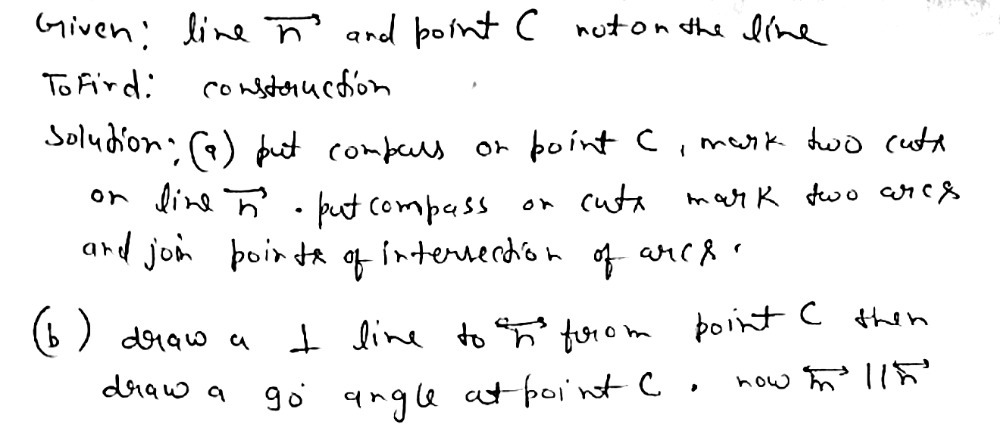 Given: line n and point C not on the line
To Find: construction
Solution: (a) put compass on point C, mark two cuts
on line n. put compass on cuts mark two arcs
and join points of intersection of arcs.
(b) draw a ⊥ line to n from point C then
draw a 90° angle at point C. now m || n